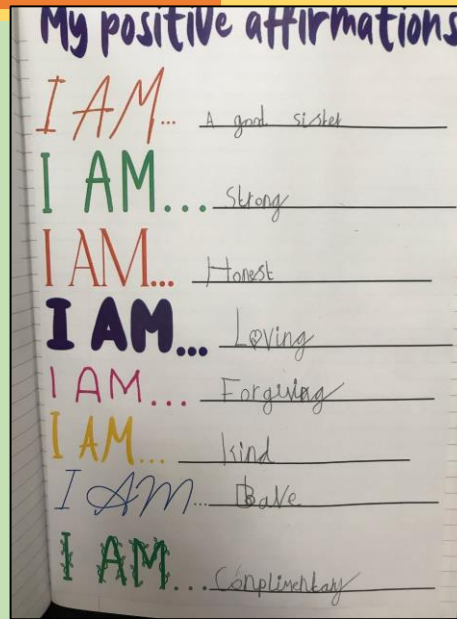 My positive affirmations
I AM... A good sister
I AM... Strong
I AM... Honest
I AM... Loving
I AM... Forgiving
I AM... Kind
I AM... BaVe
I AM... Conplimentary